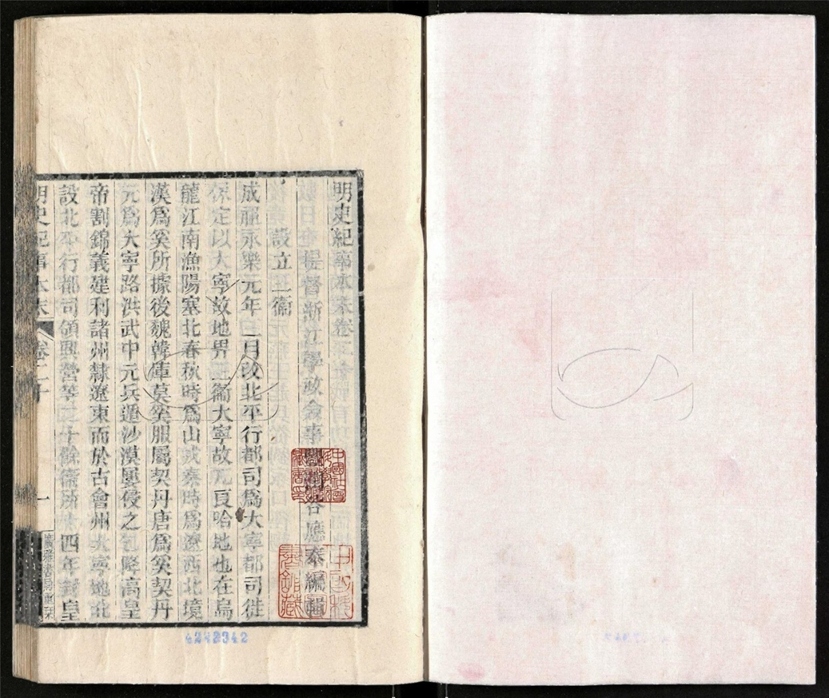 明史紀事本末卷二十
提督浙江學政僉事豐潤谷應泰編輯
設立三衛
成祖永樂元年三月改北平行都司為大寧都司徙
保定以大寧故地畀三衛大寧故兀良哈地也在烏
龍江南漁陽塞北春秋時為山戎秦時為遼西北境
漢為奚所據後魏韓庫莫奚服屬契丹唐為奚契丹
元為大寧路洪武中元兵遁沙漠屢侵之乞降高皇
帝割錦義建利諸州隸遼東而於古會州大寧地北
設北平行都司領興營等二十餘衛所十四年封皇
明史紀事本末 卷二十 一
廣雅書局刊
4242342